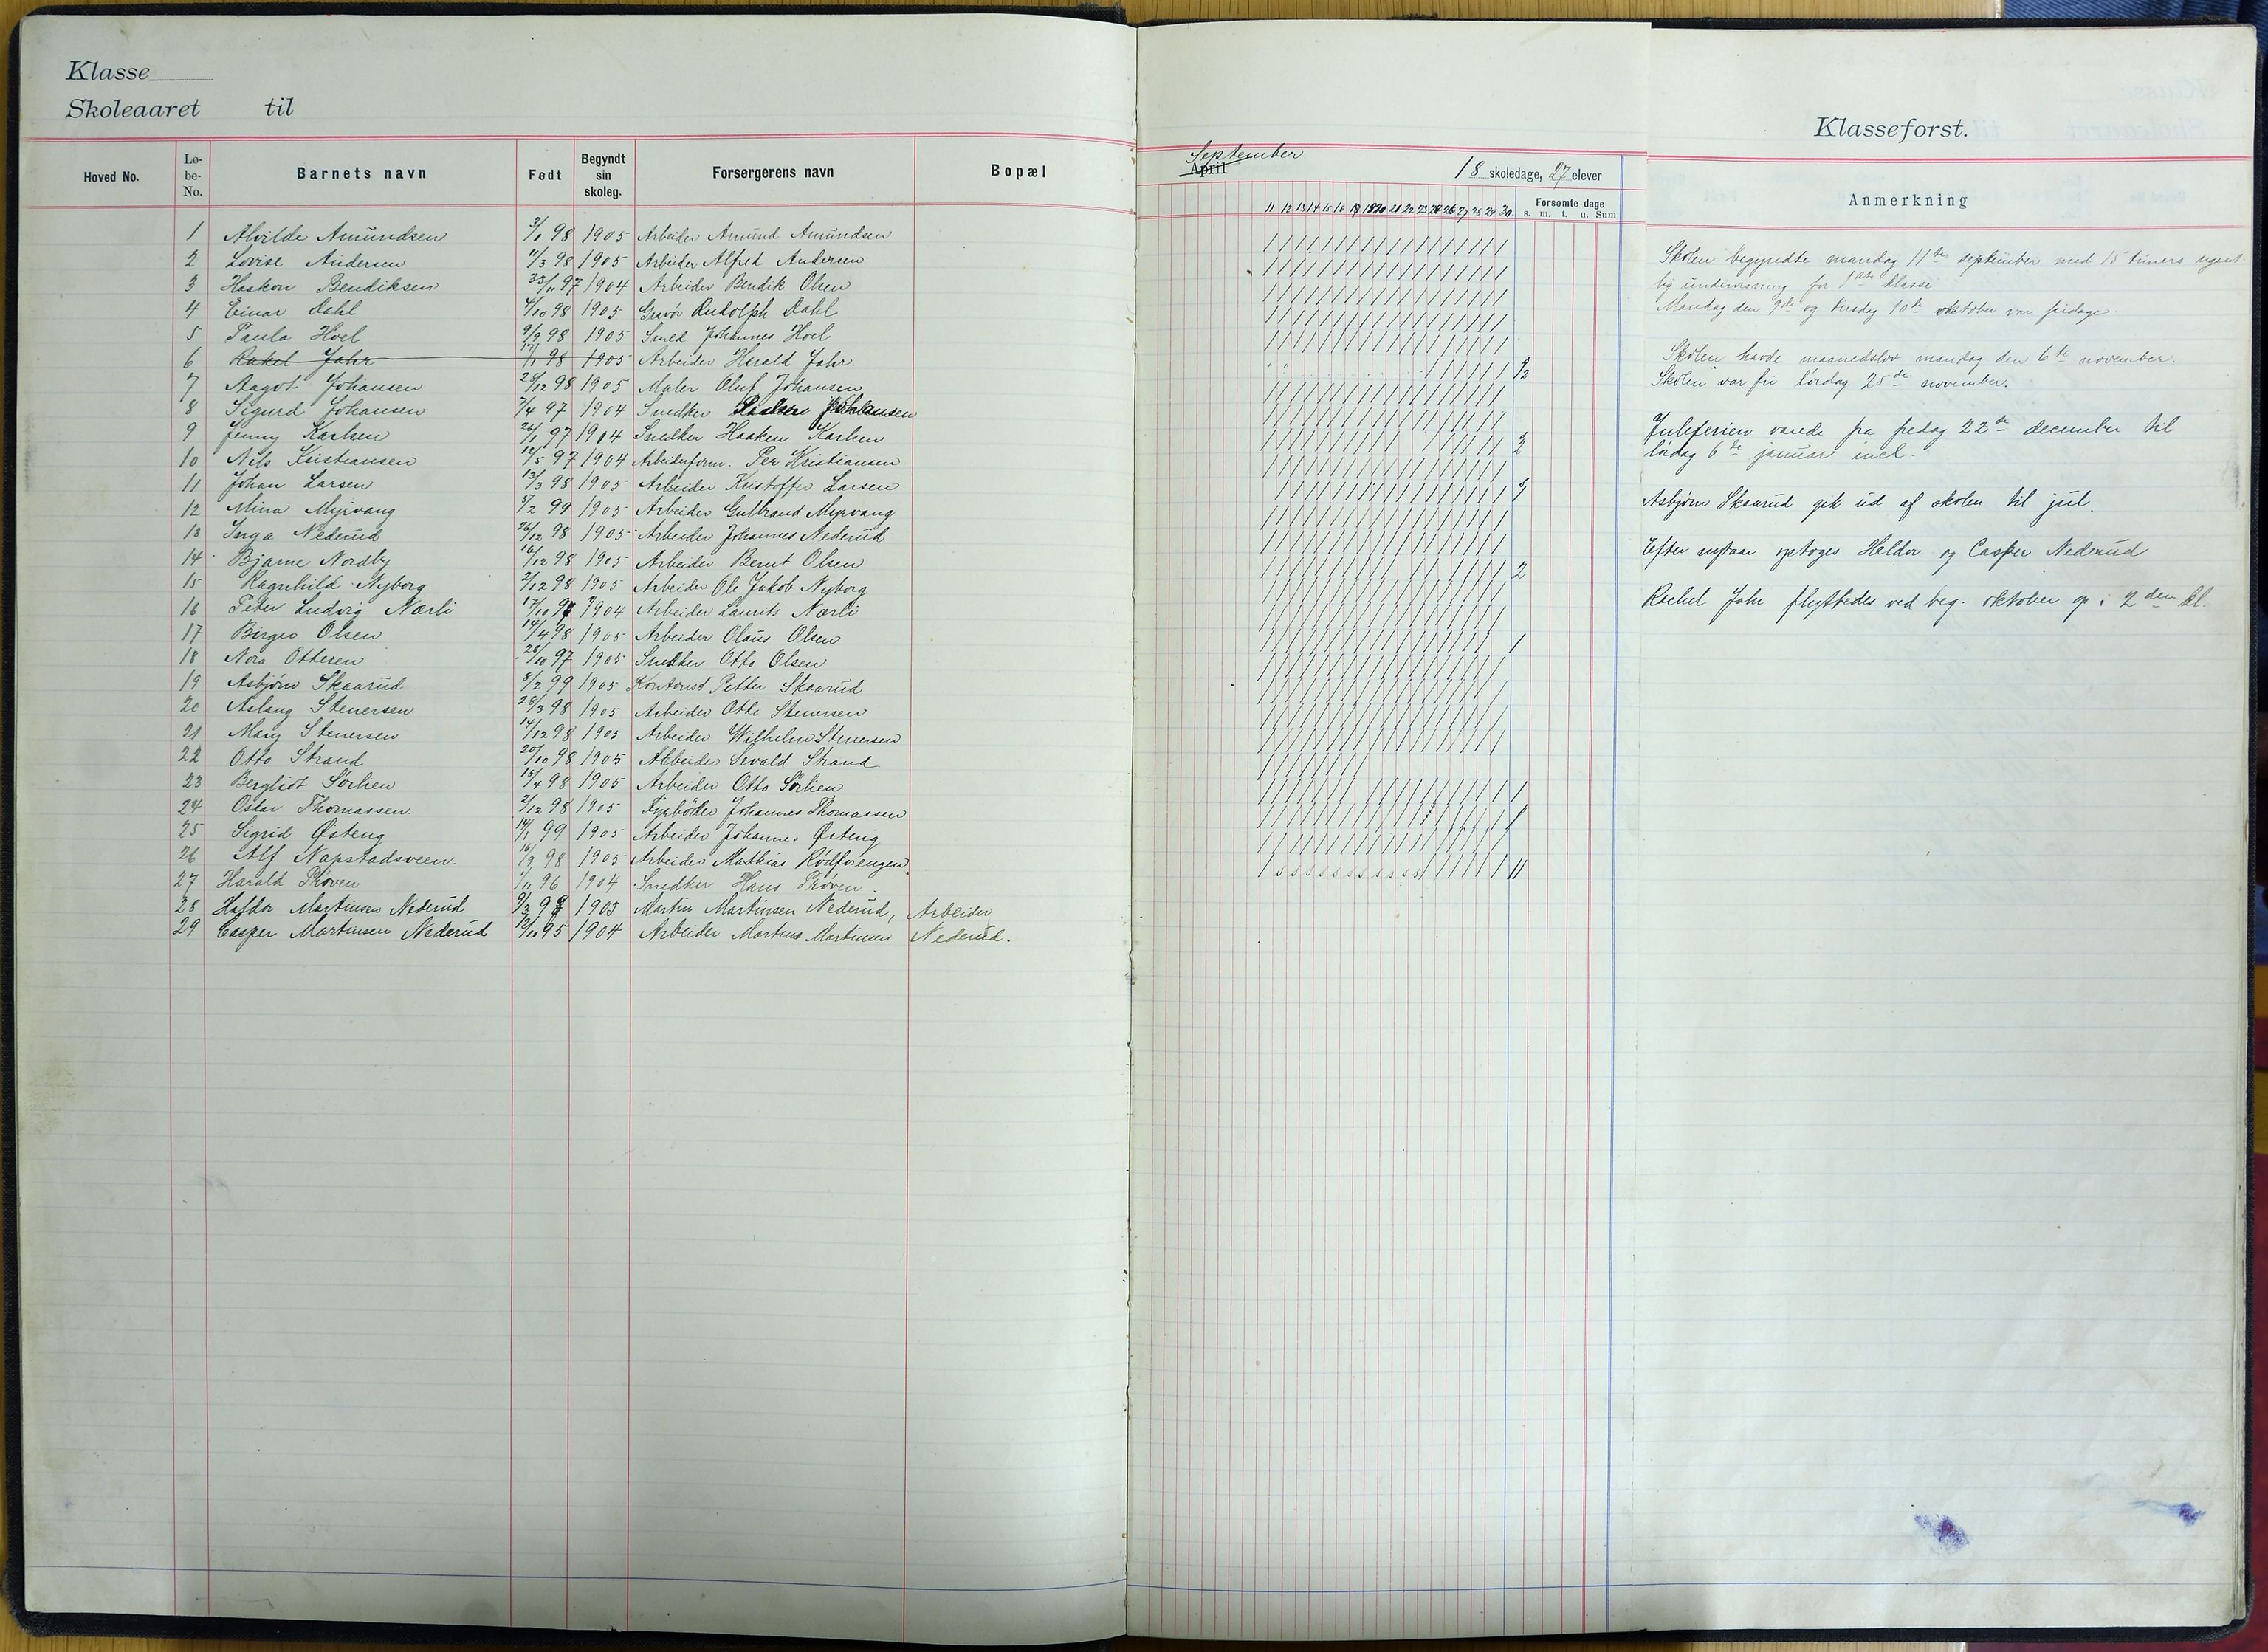 Klasse
Skoleaaret til
Hoved No. Lø-be-No. Barnets navn Født Begyndt sin skoleg. Forsørgerens navn Bopæl
1 Alvilde Amundsen 3/1 98 1905 Arbeider Amund Amundsen
2 Lovise Andersen 11/3 98 1905 Arbeider Alfred Andersen
3 Haakon Bendiksen 97 1904 Arbeider Bendik Olsen
4 Einar Dahl 4/10 98 1905 Gravør Rudolph Dahl
5 Paula Hoel 9/9 98 1905 Smed Johannes Hoel
6 Rakel Jahr 17/1 98 1905 Arbeider Harald Jahr
7 Aagot Johansen 28/12 98 1905 Maler Oluf Johansen
8 Sigurd Johansen 7/4 97 1904 Snedker Johansen
9 Jenny Karlsen 26/1 97 1904 Snedker Haaken Karlsen
10 Nils Kristiansen 12/5 97 1904 Arbeiderform. Per Kristiansen
11 Johan Larsen 13/3 98 1905 Arbeider Kristoffer Larsen
12 Mina Myrvang 5/2 99 1905 Arbeider Gulbrand Myrvang
13 Inga Nederud 26/12 98 1905 Arbeider Johannes Nederud
14 Bjarne Nordby 16/12 98 1905 Arbeider Bernt Olsen
15 Ragnhild Nyborg 2/12 98 1905 Arbeider Ole Jakob Nyborg
16 Peter Ludvig Nærli 17/10 97 1904 Arbeider Laurits Nærli
17 Birger Olsen 14/4 98 1905 Arbeider Olaus Olsen
18 Nora Ottesen 28/10 97 1905 Snedker Otto Olsen
19 Asbjørn Skaarud 8/2 99 1905 Kontorist Petter Skaarud
20 Aslaug Stenersen 28/3 98 1905 Arbeider Otto Stenersen
21 Mary Stenersen 14/12 98 1905 Arbeider Wilhelm Stenersen
22 Otto Strand 20/10 98 1905 Arbeider Sevald Strand
23 Bergliot Sørlien 15/4 98 1905 Arbeider Otto Sørlien
24 Oskar Thomassen 2/12 98 1905 Fyrbøder Johannes Thomassen
25 Sigrid Østeng 14/1 99 1905 Arbeider Johannes Østeng
26 Alf Napstadsveen. 16/9 98 1905 Arbeider Mathias Rødfosengen
27 Harald Prøven 1/11 96 1904 Snedker Hans Prøven.
28 Haldor Martinsen Nederud 9/3 98 1905 Martin Martinsen Nederud, Arbeider
29 Casper Martinsen Nederud 95 1904 Arbeider Martinus Martinsen Nederud.
September
April
18 skoledage, 27 elever
11 12 13 14 15 16 18 19 20 21 22 23 25 26 27 28 29 30
Forsømte dage
s. m. t. u. Sum
Klasseforst.
Anmerkning
Skolen begyndte mandag 11te september med 15 timers ugent
lig undervisning for 1ste klasse.
Mandag den 9de og tirsdag 10de oktober var fridage.
Skolen havde maanedslov mandag den 6te november.
Skolen var fri lørdag 25de november.
Juleferien varede fra fredag 22de december til
lørdag 6te januar incl.
Asbjørn Skaarud gik ud af skolen til jul.
Efter nytaar optoges Haldor og Casper Nederud
Rachel Jahr flyttedes ved beg. oktober op i 2den kl.